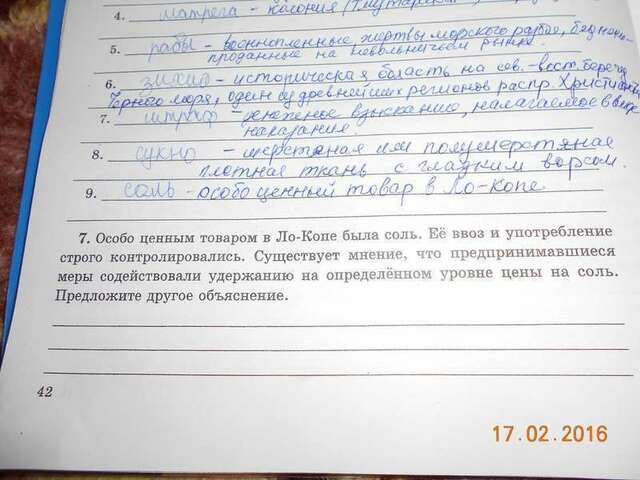 4. матрега - колония (Тмутаракан
5. рабы - военнопленные жертвы морского разбоя,
проданные на невольничьем рынке.
6. Зихия - историческая область на сев.-вост. берегу
Чёрного моря, один из древнейших регионов распр. Христианства
7. штраф - денежное взыскание, налагаемое в виде
наказания
8. сукно - шерстяная или полушерстяная
плотная ткань с гладким ворсом.
9. соль - особо ценный товар в Ло-Копе
7. Особо ценным товаром в Ло-Копе была соль. Её ввоз и употребление
строго контролировались. Существует мнение, что предпринимавшиеся
меры содействовали удержанию на определённом уровне цены на соль.
Предложите другое объяснение.
42
17.02.2016